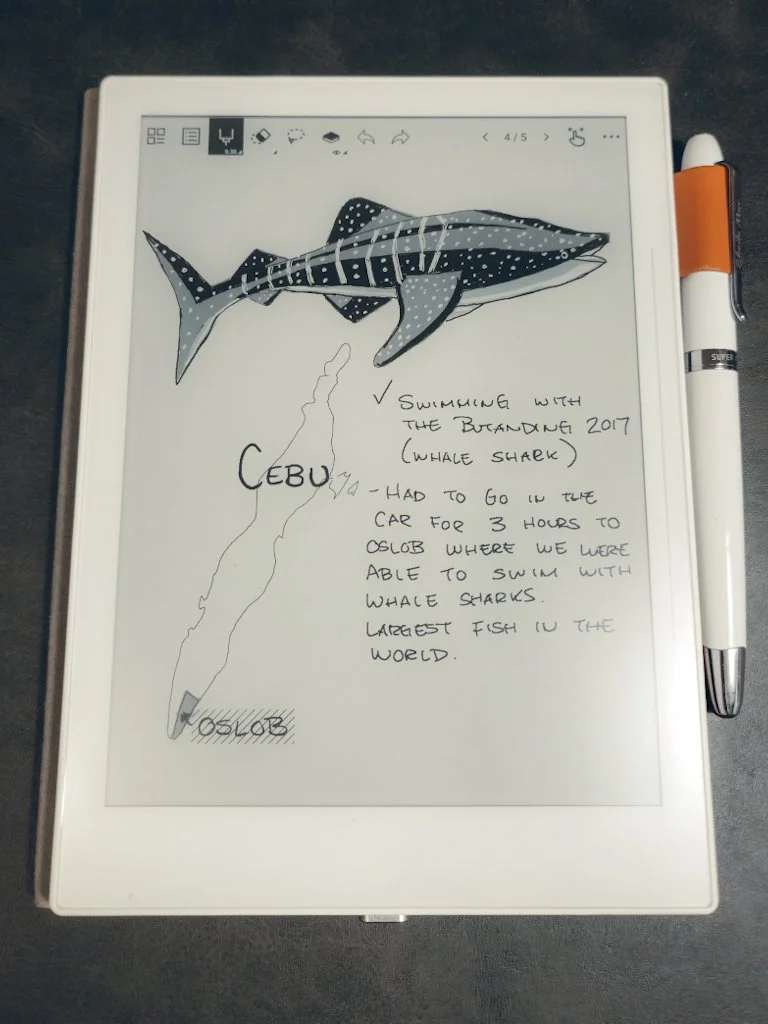 0.35
4/5
✓ SWIMMING WITH
THE BUTANDING 2017
(WHALE SHARK)
CEBU
- HAD TO GO IN THE
CAR FOR 3 HOURS TO
OSLOB WHERE WE WERE
ABLE TO SWIM WITH
WHALE SHARKS.
LARGEST FISH IN THE
WORLD.
OSLOB
SUPER